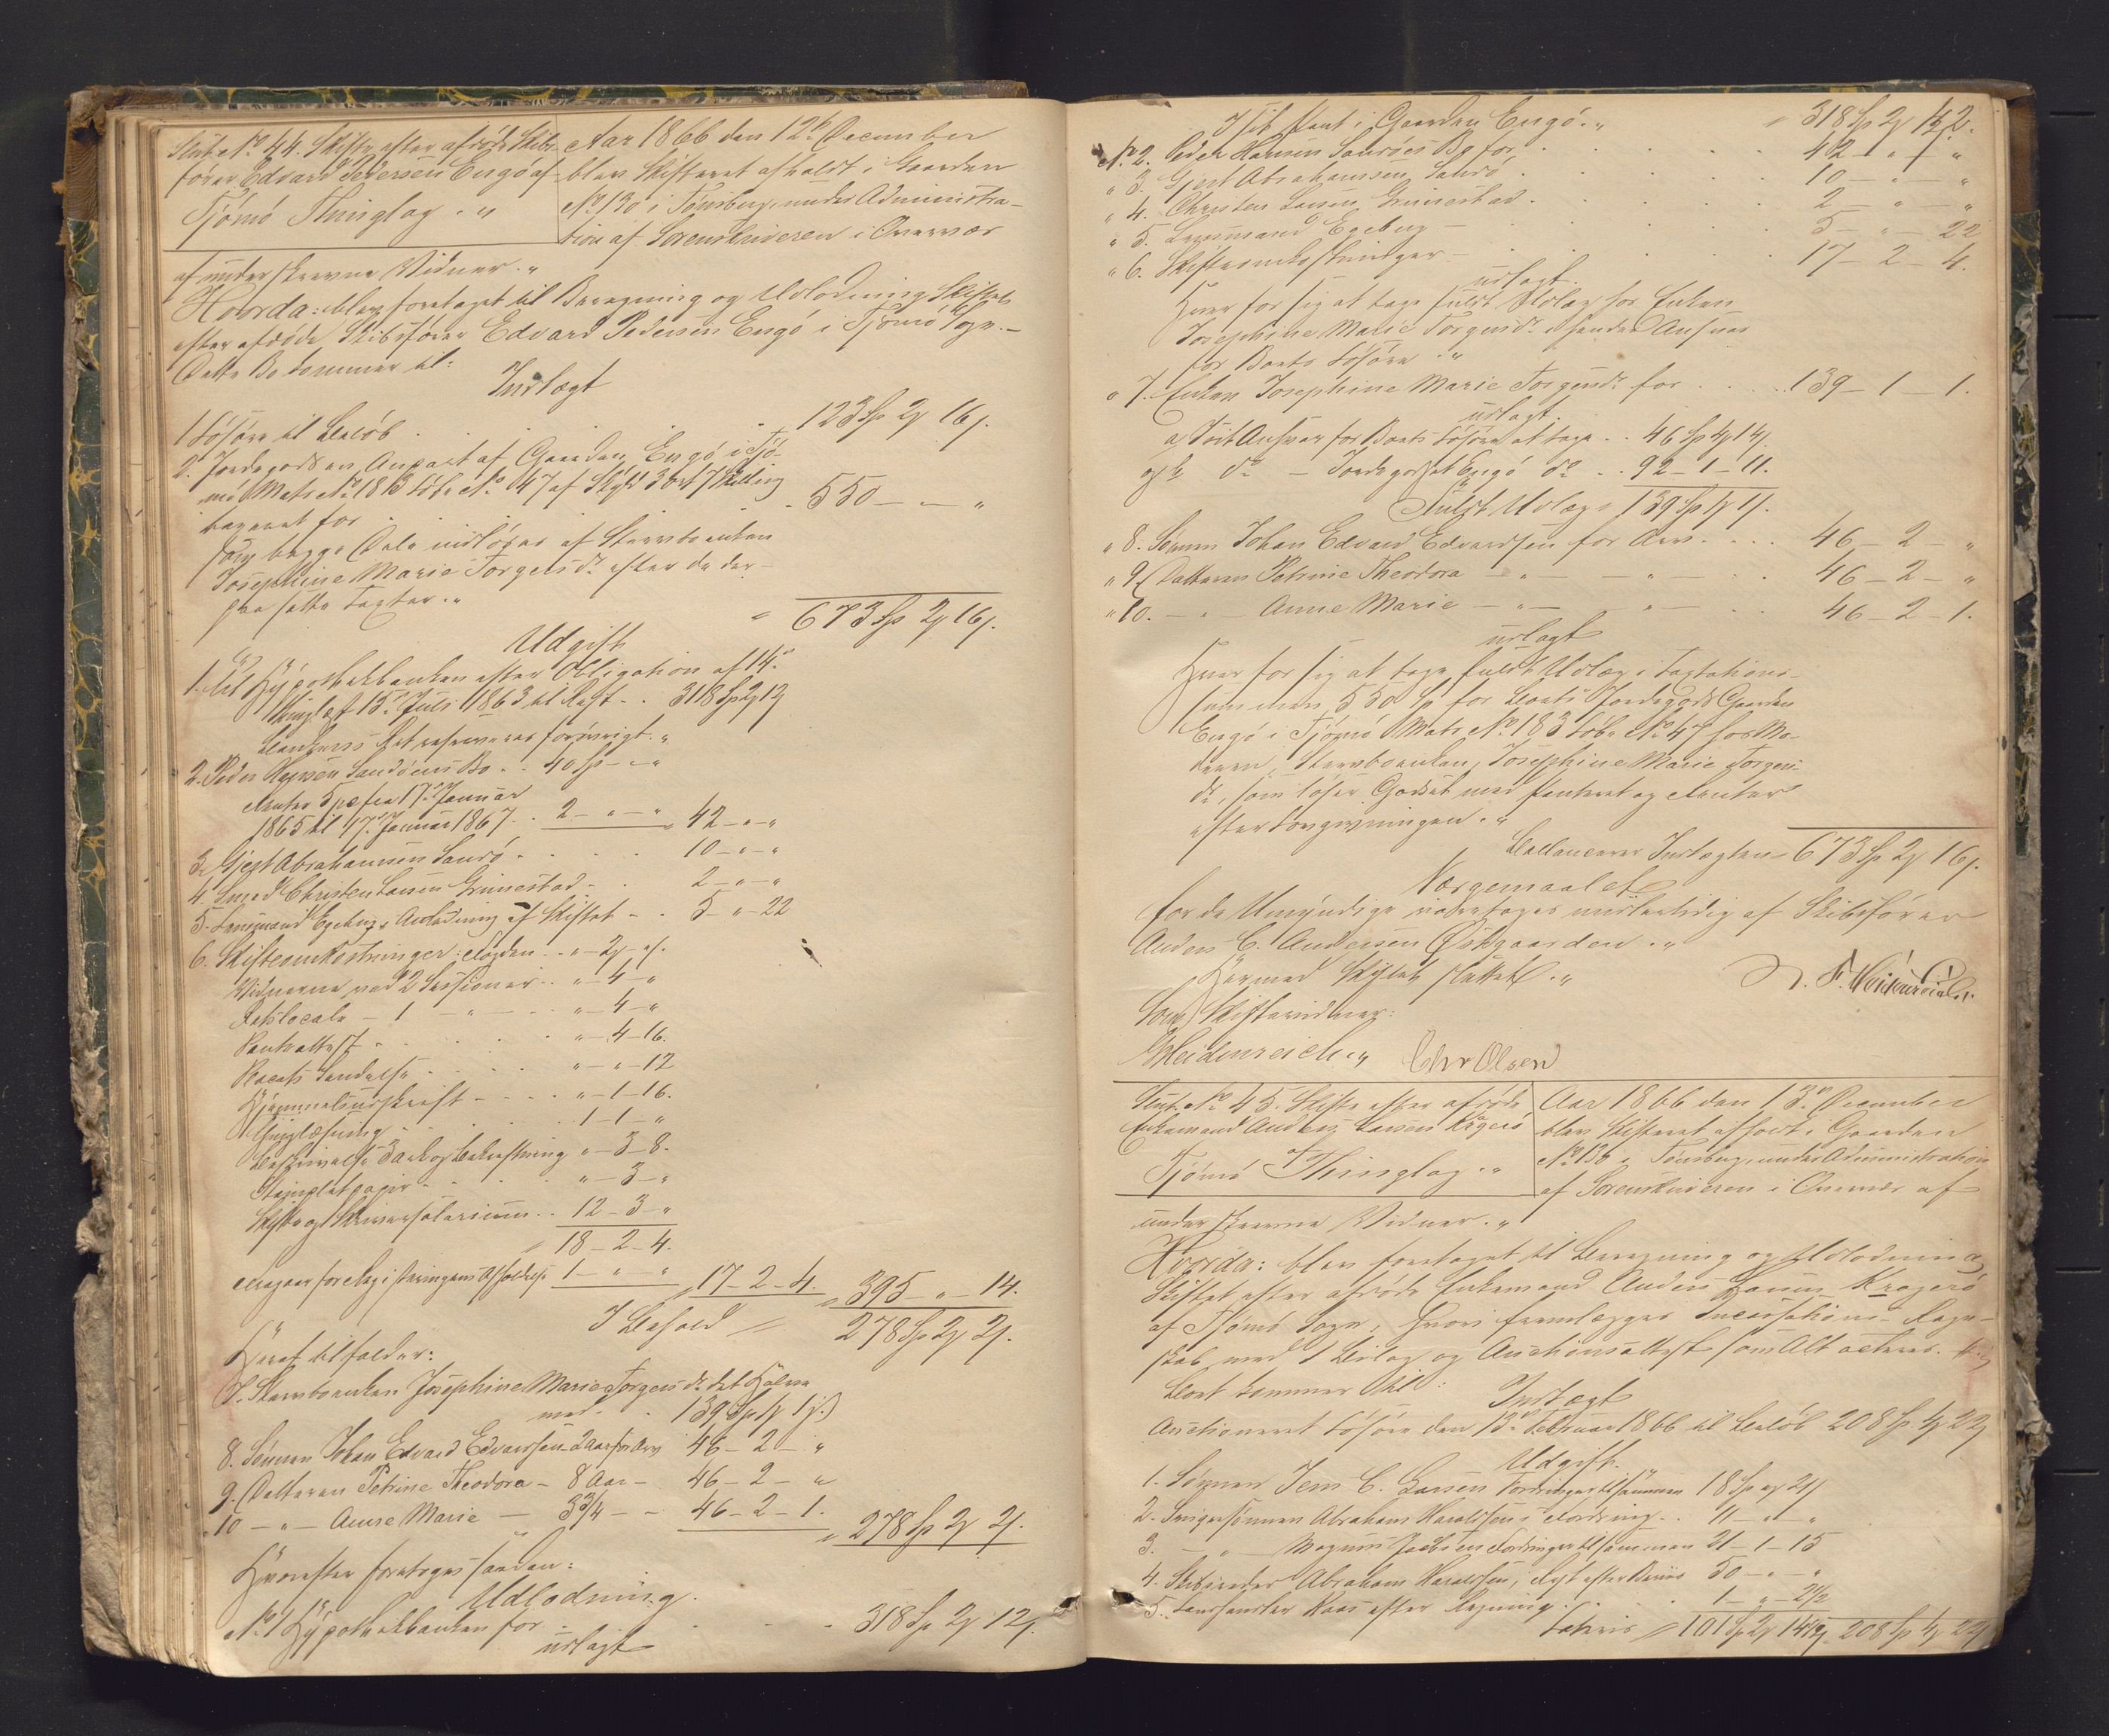 Slut. No 44. Skifte efter afdøde Skibs-
fører Edvard Pedersen Engø af
Tjømø Thinglag."
Aar 1866 den 12te December
blev Skifteret afholdt i Gaarden
No 130 i Tønsberg, under Administra-
tion af Sorenskriveren i Overvær
af underskrevne Vidner."
Hvorda: blev foretaget til Beregning og Udlodning Skiftet
efter afdøde Skibsfører Edvard Pedersen Engø i Tjømø Sogn.-
Dette Bo kommer til:
Indtægt
1 Løsøre til Beløb . . . 123 Sp 2 16 s.
2. Jordegods en Anpart af Gaarden Engø i Tjø-
mø Matr No 183 Løbe No 47 af Skyld 3 ort 7 Skilling
taxeret for . . . 550 - " - "
som begge Dele indløses af Stervboenken
Josephine Marie Torgersdr. efter de der-
paa satte Taxter."
673 Sp 2 16 s.
Udgift
1. Til Hypothekbanken efter Obligation af 14de
thinglæst 15de Juli 1863 til Rest . . 318 Sp 2 12
Bankens Ret reserveres forøvrigt."
2. Peder Hansen Sandøens Bo . . 40 Sp - " - "
Renter 5 pc fra 17de Januar
1865 til 17. Januar 1867 . . 2 - " - " 42 - " - "
3. Gjert Abrahamsen Sandø . . . 10 - " - "
4. Smed Christen Larsen Grimestad - . . 2 - " - "
5. Lensmand Egeberg i Anledning af Skiftet - . 5 - " - 22
6. Skifteomkostninger: . . " - 2 - "
Vidnerne ved 2 Sessioner . . " - 4 - "
Retslocale - 1 - " - . . " - 4 - "
Pantattest . . . " - 4 - 16.
. . . " - " - 12
Hjemmelsudskrift - . . . " - 1 - 16.
Thinglæsning . . . 1 - 1 - "
Beskrivelse 3 Ark og Bekræftning " - 3 - 8.
Stempletpapir . . . " - 3 - "
Skifte og Skriversalarium . . 12 - 3 - "
18 - 2 - 4.
fragaar for Registreringens Afholdelse 1 - " - " 17 - 2 - 4. 395 - " - 14.
I Behold 278 Sp 2 2 s.
Heraf tilfalder:
7. Stervboenken Josephine Marie Torgersdr. det Halve
med . . 139 Sp 1 1 s.)
8. Sønnen Johan Edvard Edvardsen 2 Aar for Arv 46 - 2 - "
9. Datteren Petrine Theodora - 8 Aar - 46 - 2 - "
10 - " - Anne Marie - 3 3/4 - - 46 - 2 - 1. 278 Sp 2 2 s.
Hvorefter foretoges saadan:
Udlodning.
No 1 Hypothekbanken for . . . 318 Sp 2 12 s.
udlagt
I sit Pant i Gaarden Engø." 318 Sp 2 12.
No 2. Peder Hansen Sandøes Bo for . . . 42 - " - "
" 3. Gjert Abrahamsen Sandø . . . 10 - " - "
" 4. Christen Larsen Grimestad . . . 2 - " - "
" 5. Lensmand Egeberg - . . . 5 - " - 22
" 6. Skifteomkostninger - . . . 17 - 2 - 4.
udlagt.
Hver for sig at tage fuldt Udlæg hos Enken
Josephine Marie Torgersdr. i hendes Ansvar
for Boets Løsøre."
" 7. Enken Josephine Marie Torgersdr. for . . . 139 - 1 - 1.
udlagt.
a, I sit Ansvar for Boets Løsøre at tage . . 46 Sp 4 14 s.
og b do - Jordegodset Engø do . . 92 - 1 - 11.
Fuldt Udlæg 139 Sp 1 1 s.
" 8. Sønnen Johan Edvard Edvardsen for Arv . . . 46 - 2 - "
" 9. Datteren Petrine Theodora - " - - " - . . 46 - 2 - "
" 10. - " - Anne Marie - " - - " - . . 46 - 2 - 1.
udlagt
Hver for sig at tage fuldt Udlæg i Taxtations-
summen 550 Sp for Boets Jordegods Gaarden
Engø i Tjømø Matr No 183 Løbe No 47 hos Mo-
deren, Stervboenken, Josephine Marie Torgers-
dr., som løser Godset med Panteret og Renter
efter Lovgivningen."
Ballancerer Indtægten 673 Sp 2 16 s.
Værgemaalet
for de Umyndige varetages midlertidig af Skibsfører
Anders C. Andersen Østgaarden."
Hermed Skiftet sluttet."
Som Skiftevidner:
Heidenreich." Chr Olsen
Slut. No 45. Skifte efter afdøde
Enkemand Anders Larsen Kragerø
Tjømø Thinglag."
Aar 1866 den 13de December
blev Skifteret afholdt i Gaarden
No 130 i Tønsberg, under Administration
af Sorenskriveren i Overvær af
underskrevne Vidner."
Hvorda: blev foretaget til Beregning og Udlodning
Skiftet efter afdøde Enkemand Anders Larsen Kragerø
af Tjømø Sogn, hvori fremlægges Incassations-Regn-
skab med 1 Bilag og Auctionsattest som Alt acteres.
Boet kommer til:
Indtægt
Auctioneret Løsøre den 13de Februar 1866 til Beløb 208 Sp 4 22
Udgift.
1. Sønnen Jens C. Larsen Fordringer tilsammen 18 Sp " 21
2. Svigersønnen Abraham Haraldsens Fordring . . 11 - " - "
3. - " - Magnus Jacobsens Fordringer tilsammen 21 - 1 - 15
4. Skibsreder Abraham Haraldsen, Rest efter Beviis 50 - " - "
5. Landhandler Roos efter Regning . . . 1 - " - 2 1/2
Latvis 101 Sp 2 14 1/2 208 Sp 4 22